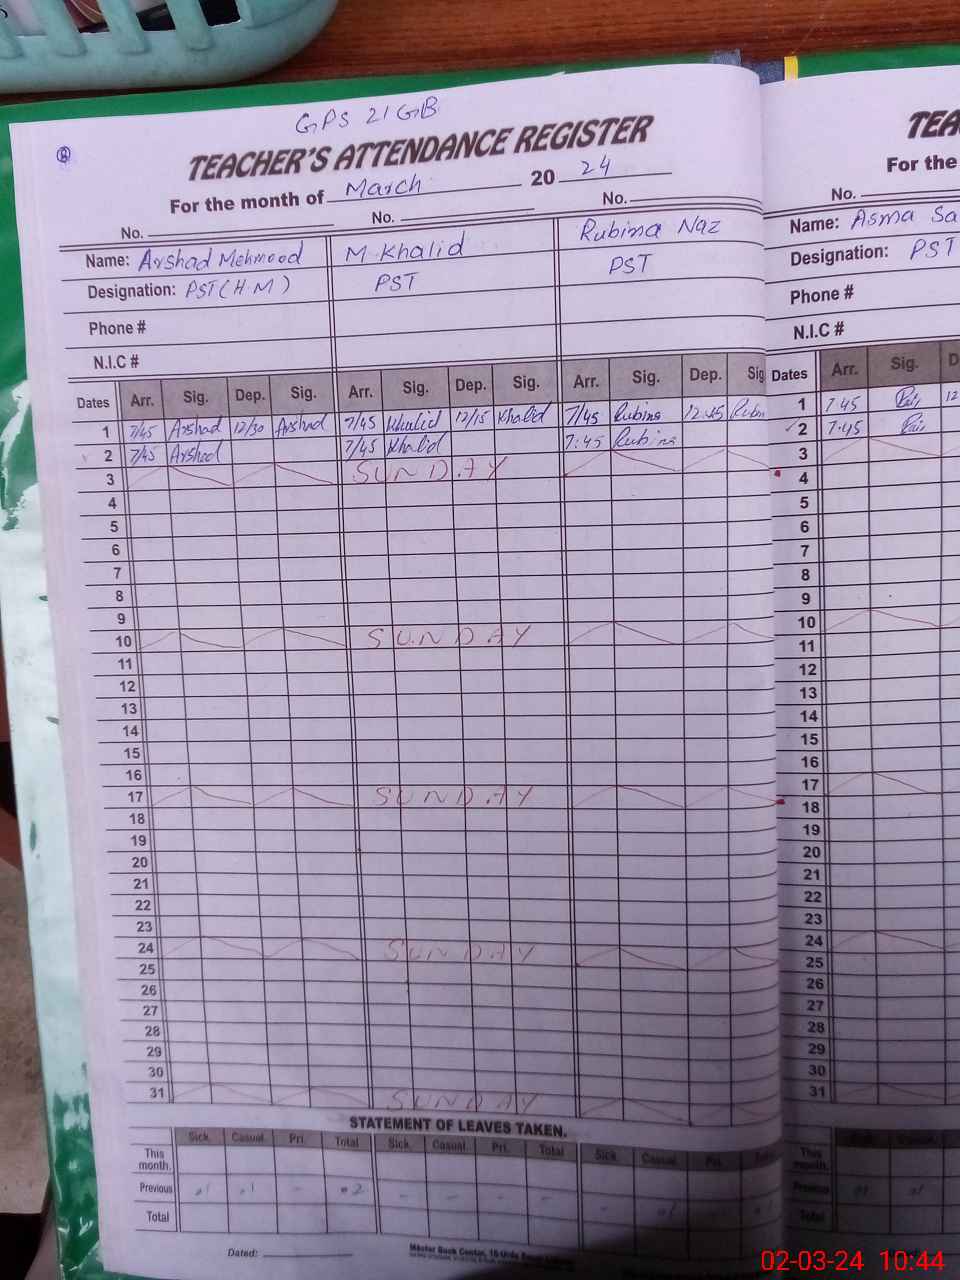 GPS 21 GB
8
TEACHER'S ATTENDANCE REGISTER
For the month of March 20 24
No. No. No.
Name: Arshad Mehmood M. Khalid Rubina Naz
Designation: PST (H.M) PST PST
Phone #
N.I.C #
Dates Arr. Sig. Dep. Sig. Arr. Sig. Dep. Sig. Arr. Sig. Dep. Sig
1 7/45 Arshad 12/30 Arshad 7/45 Khalid 12/15 Khalid 7/45 Rubina 12:45 Rubin
2 7/45 Arshad 7/45 Khalid 7:45 Rubina
3 SUNDAY
4
5
6
7
8
9
10 SUNDAY
11
12
13
14
15
16
17 SUNDAY
18
19
20
21
22
23
24 SUNDAY
25
26
27
28
29
30
31 SUNDAY
STATEMENT OF LEAVES TAKEN.
Sick. Casual. Pri. Total Sick. Casual. Pri. Total Sick. Casual. Pri.
This month.
Previous 01 01 - 02 - - - - - 01
Total
Dated:
Master Book Center,
TEA
For the
No.
Name: Asma Sa
Designation: PST
Phone #
N.I.C #
Dates Arr. Sig. D
1 7:45 12
2 7:45
3
4
5
6
7
8
9
10
11
12
13
14
15
16
17
18
19
20
21
22
23
24
25
26
27
28
29
30
31
This month.
Previous 01 01
Total
02-03-24 10:44